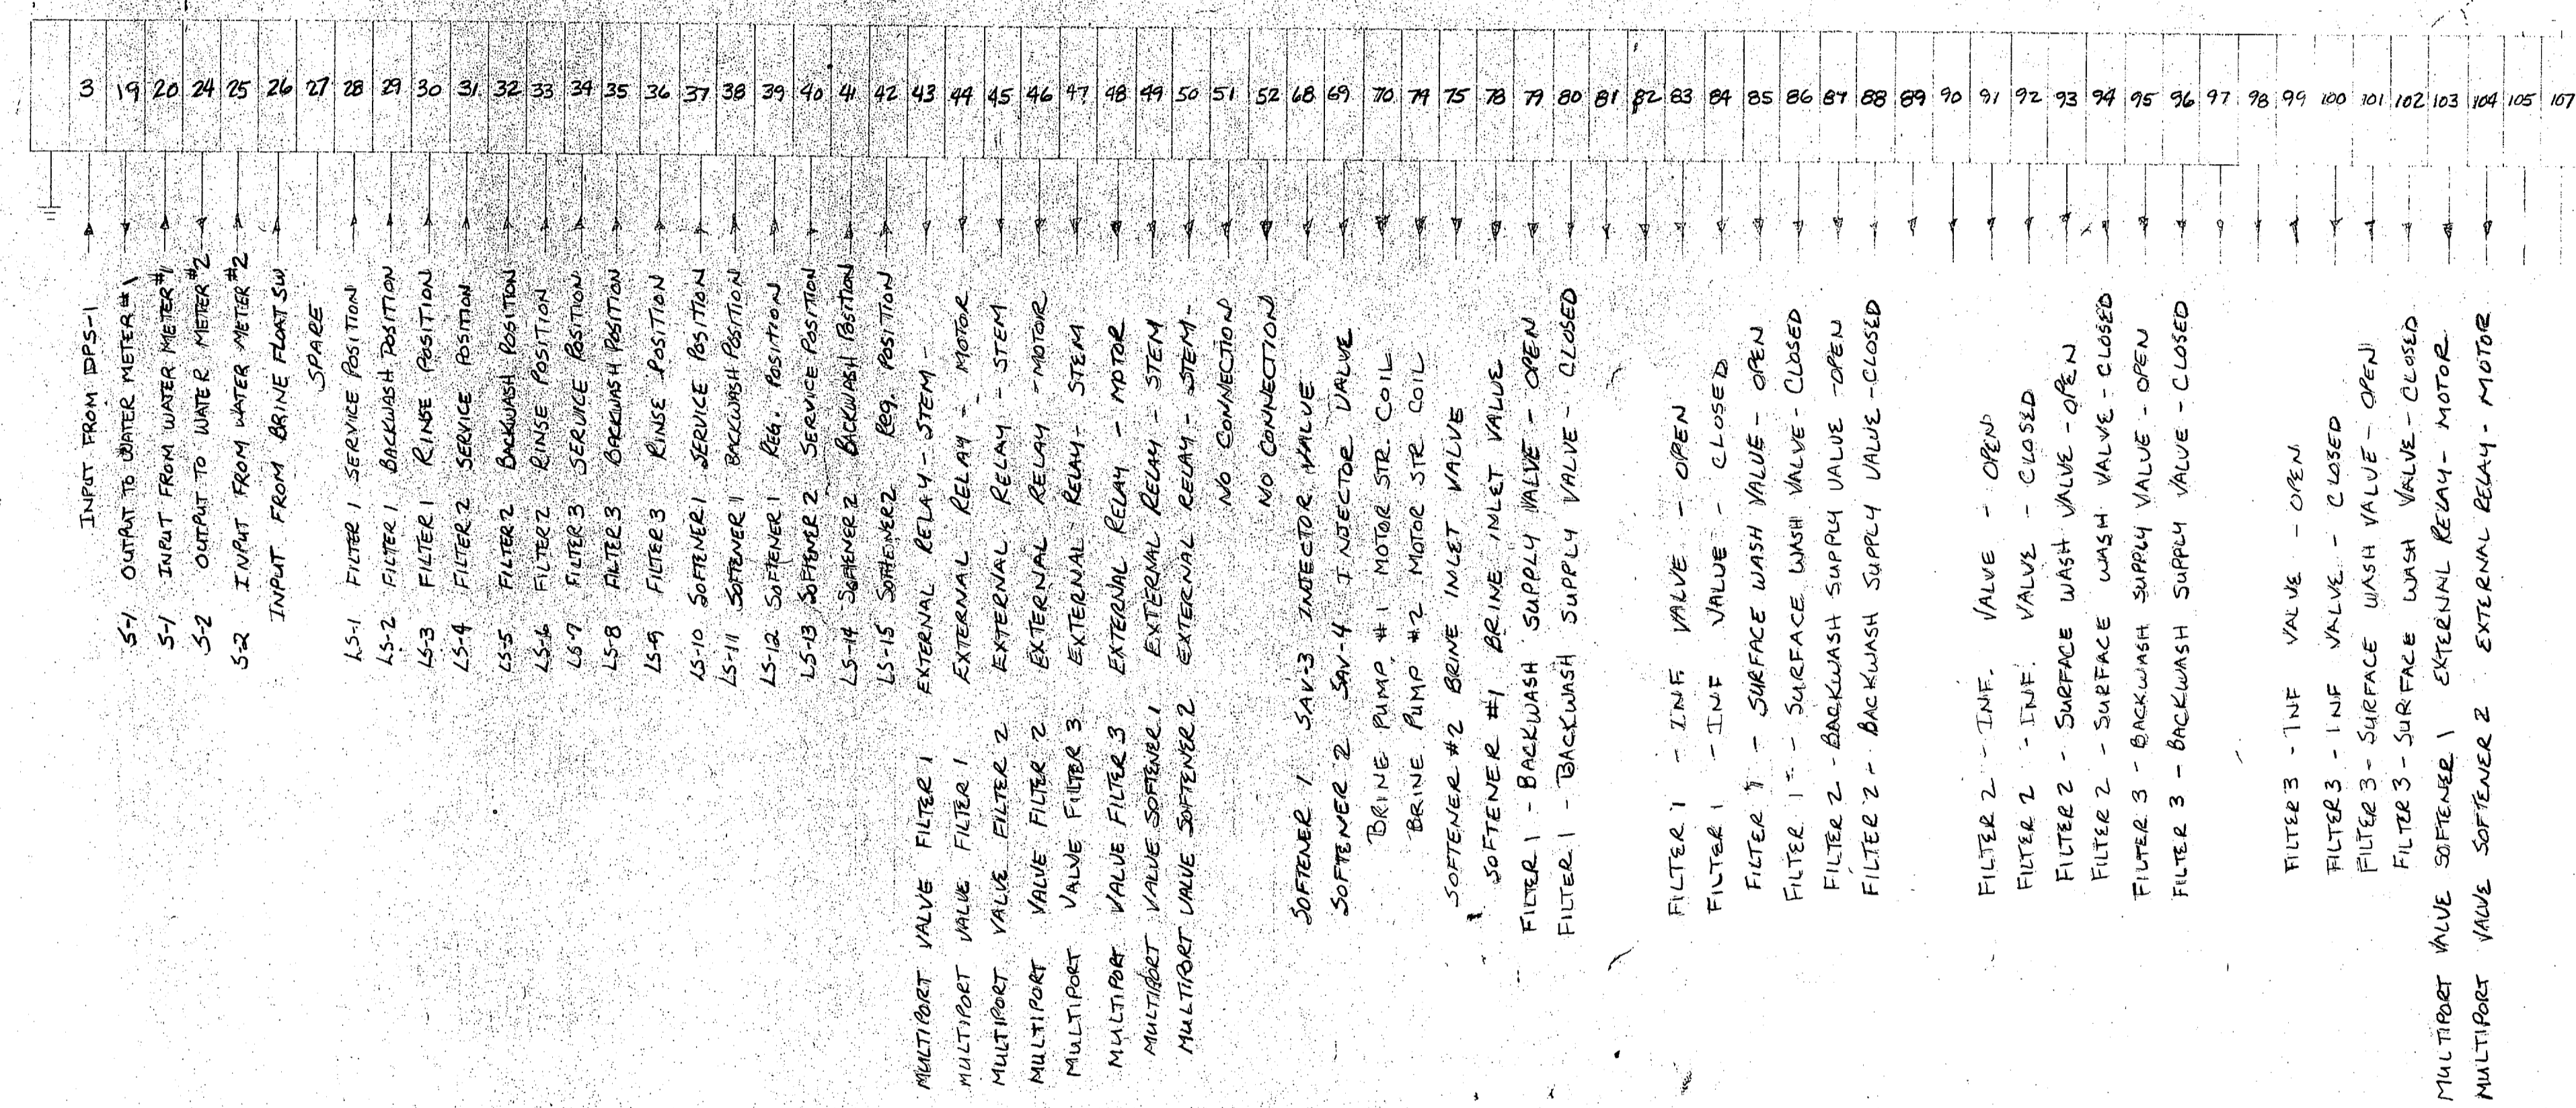 3 19 20 24 25 26 27 28 29 30 31 32 33 34 35 36 37 38 39 40 41 42 43 44 45 46 47 48 49 50 51 52 68 69 70 79 75 78 79 80 81 82 83 84 85 86 87 88 89 90 91 92 93 94 95 96 97 98 99 100 101 102 103 104 105 107
INPUT FROM DPS-1
S-1 OUTPUT TO WATER METER #1
S-1 INPUT FROM WATER METER #1
S-2 OUTPUT TO WATER METER #2
S-2 INPUT FROM WATER METER #2
INPUT FROM BRINE FLOAT SW
SPARE
LS-1 FILTER 1 SERVICE POSITION
LS-2 FILTER 1 BACKWASH POSITION
LS-3 FILTER 1 RINSE POSITION
LS-4 FILTER 2 SERVICE POSITION
LS-5 FILTER 2 BACKWASH POSITION
LS-6 FILTER 2 RINSE POSITION
LS-7 FILTER 3 SERVICE POSITION
LS-8 FILTER 3 BACKWASH POSITION
LS-9 FILTER 3 RINSE POSITION
LS-10 SOFTENER 1 SERVICE POSITION
LS-11 SOFTENER 1 BACKWASH POSITION
LS-12 SOFTENER 1 REG. POSITION
LS-13 SOFTENER 2 SERVICE POSITION
LS-14 SOFTENER 2 BACKWASH POSITION
LS-15 SOFTENER 2 REG. POSITION
MULTIPORT VALVE FILTER 1 EXTERNAL RELAY - STEM -
MULTIPORT VALVE FILTER 1 EXTERNAL RELAY - MOTOR
MULTIPORT VALVE FILTER 2 EXTERNAL RELAY - STEM
MULTIPORT VALVE FILTER 2 EXTERNAL RELAY - MOTOR
MULTIPORT VALVE FILTER 3 EXTERNAL RELAY - STEM
MULTIPORT VALVE FILTER 3 EXTERNAL RELAY - MOTOR
MULTIPORT VALVE SOFTENER 1 EXTERNAL RELAY - STEM
MULTIPORT VALVE SOFTENER 2 EXTERNAL RELAY - STEM -
NO CONNECTION
NO CONNECTION
SOFTENER 1 SAV-3 INJECTOR VALVE
SOFTENER 2 SAV-4 INJECTOR VALVE
BRINE PUMP #1 MOTOR STR. COIL
BRINE PUMP #2 MOTOR STR COIL
SOFTENER #2 BRINE INLET VALVE
SOFTENER #1 BRINE INLET VALVE
FILTER 1 - BACKWASH SUPPLY VALVE - OPEN
FILTER 1 - BACKWASH SUPPLY VALVE - CLOSED
FILTER 1 - INF VALVE - OPEN
FILTER 1 - INF VALVE - CLOSED
FILTER 1 - SURFACE WASH VALVE - OPEN
FILTER 1 - SURFACE WASH VALVE - CLOSED
FILTER 2 - BACKWASH SUPPLY VALVE - OPEN
FILTER 2 - BACKWASH SUPPLY VALVE - CLOSED
FILTER 2 - INF. VALVE - OPEN
FILTER 2 - INF. VALVE - CLOSED
FILTER 2 - SURFACE WASH VALVE - OPEN
FILTER 2 - SURFACE WASH VALVE - CLOSED
FILTER 3 - BACKWASH SUPPLY VALVE - OPEN
FILTER 3 - BACKWASH SUPPLY VALVE - CLOSED
FILTER 3 - INF VALVE - OPEN
FILTER 3 - INF VALVE - CLOSED
FILTER 3 - SURFACE WASH VALVE - OPEN
FILTER 3 - SURFACE WASH VALVE - CLOSED
MULTIPORT VALVE SOFTENER 1 EXTERNAL RELAY - MOTOR
MULTIPORT VALVE SOFTENER 2 EXTERNAL RELAY - MOTOR